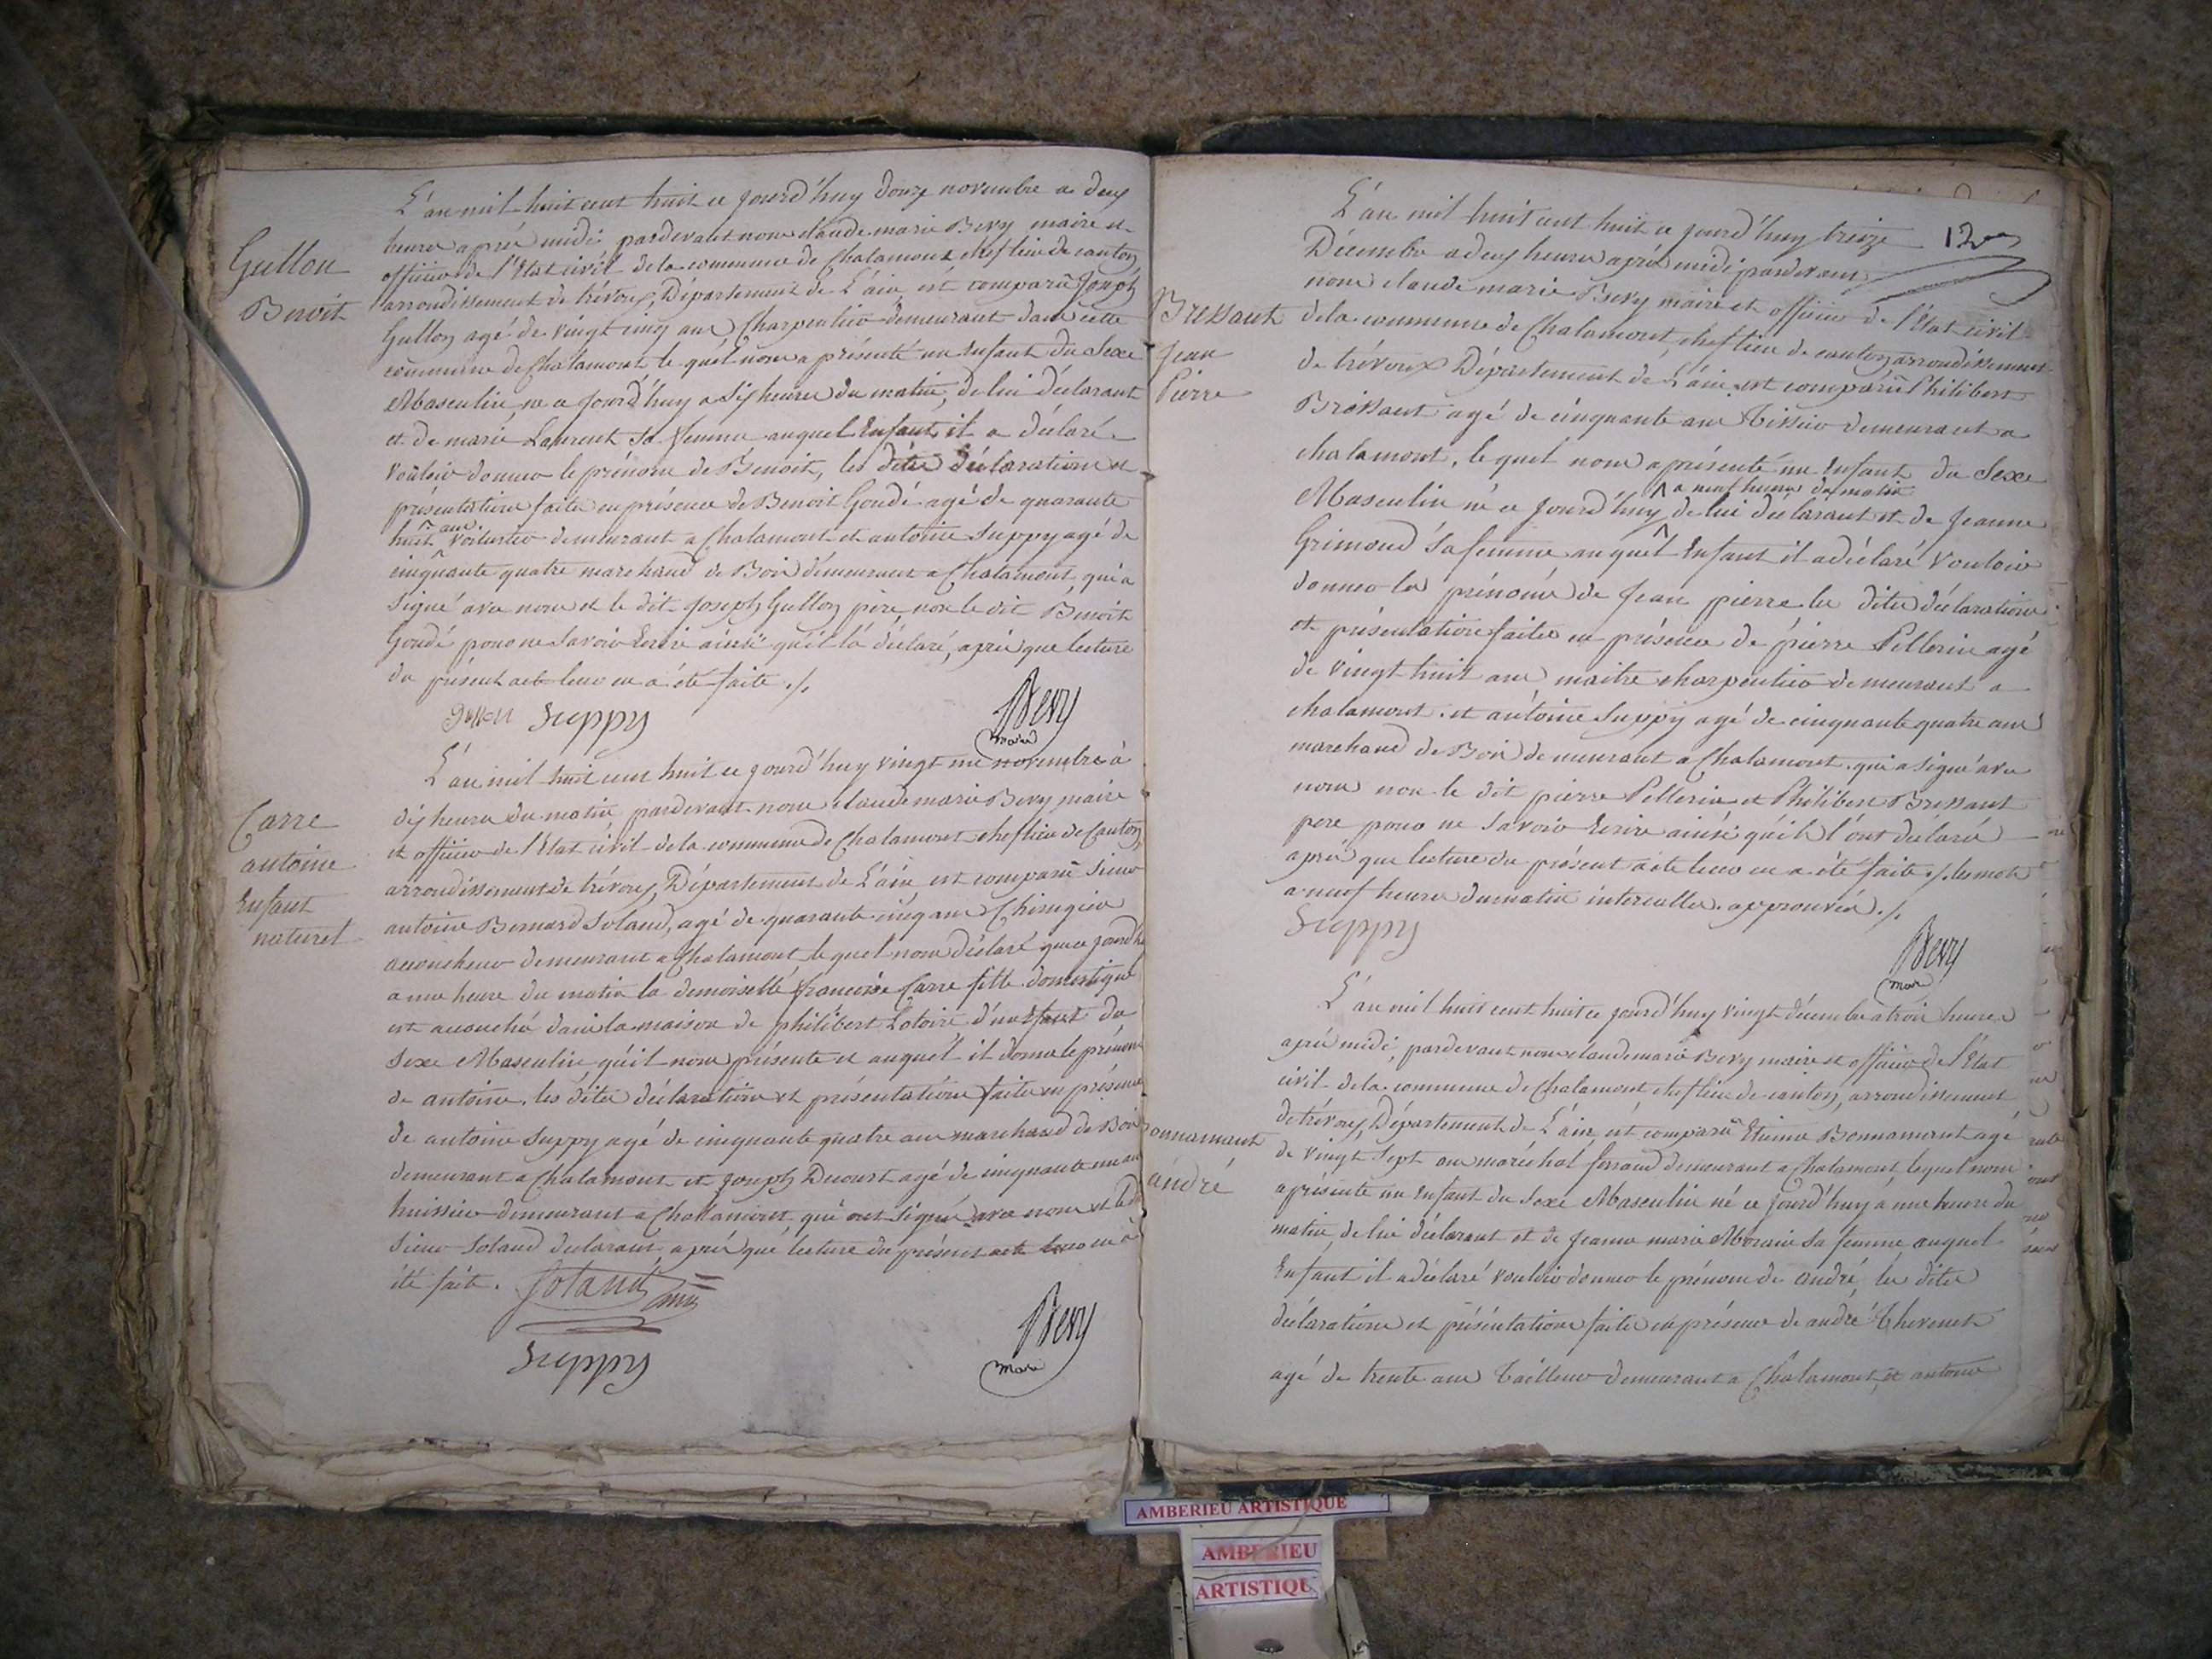 Gullon
Benoit
L'an mil huit cent huit ce jourd'huy douze novembre a deux
heures après midi pardevant nous claude marie Bevy maire et
officier de l'Etat civil de la commune de Chalamont chef lieu de canton
arrondissement de trévoux, Département de L'ain est comparu Joseph
Gullon agé de vingt cinq ans Charpentier demeurant dans cette
commune de Chalamont le quel nous a présenté un Enfant du Sexe
Masculin né ce jourd'huy a six heures du matin, de lui déclarant
et de marie Laurent sa femme auquel Enfant il a déclaré
vouloir donner le prénom de Benoit, les dites déclaration et
présentation faites en présence de Benoit Goudé agé de quarante
huit ans voiturier demeurant a Chalamont et antoine Suppy agé de
cinquante quatre marchand de Bois demeurant a Chalamont qui a
signé avec nous et le dit Joseph Gullon père non le dit Benoit
Goudé pour ne savoir Ecrire ainsi qu'il l'a déclaré, après que lecture
du présent acte leur en a été faite ./.
Gullon Suppy Bevy
maire
Carre
antoine
Enfant
naturel
L'an mil huit cent huit ce jourd'huy vingt un novembre à
dix heures du matin pardevant nous claude marie Bevy maire
et officier de l'Etat civil de la commune de Chalamont chef lieu de Canton,
arrondissement de trévoux, Département de L'ain est comparu Sieur
antoine Bernard Soland, agé de quarante cinq ans Chirugien
accoucheur demeurant a Chalamont le quel nous déclaré que ce jourd'h
a une heure du matin la demoiselle francoise Carre fille domestique
est accouché dans la maison de philibert Lotoire d'un Enfant du
Sexe Masculin qu'il nous présente et auquel il donne le prénom
de antoine. les dites déclaration et présentation faites en présence
de antoine Suppy agé de cinquante quatre ans marchand de Bois
demeurant a Chalamont et Joseph Decourt agé de cinquante un an
huissier demeurant a Chalamont qui ont signé avec nous et le d
Sieur Soland declarant après que lecture du présent acte leur en a
été faite. Soland
Suppy Bevy
maire
120
Bressant
Jean
Pierre
L'an mil huit cent huit ce jourd'huy treize
Décembre a deux heures après midi pardevant
nous claude marie Bevy maire et officier de l'Etat civil
de la commune de Chalamont, chef lieu de canton, arrondissement
de trévoux Département de L'ain est comparu Philibert
Bressant agé de cinquante ans Tissier demeurant a
chalamont, le quel nous a présenté un Enfant du Sexe
a neuf heures du matin
Masculin né ce jourd'huy de lui déclarant et de Jeanne
Grimoud sa femme, au quel Enfant il a déclaré vouloir
donner les prénoms de Jean pierre les dites déclaration
et présentation faites en présence de pierre Pellerin agé
de vingt huit ans maitre charpentier demeurant a
chalamont. et antoine Suppy agé de cinquante quatre ans
marchand de Bois demeurant a Chalamont. qui a signé avec
nous non le dit pierre Pellerin et Philibert Bressant
pere pour ne savoir Ecrire ainsi qu'ils l'ont déclaré
après que lecture du présent acte leur en a été faite ./. les mots
a neuf heures du matin intercallés. approuvés ./.
Suppy Bevy
maire
onnamant
andré
L'an mil huit cent huit ce jourd'huy vingt décembre a trois heures
après midi, pardevant nous claude marie Bevy maire et officier de l'Etat
civil de la commune de Chalamont, chef lieu de canton, arrondissement
de trévoux, Département de L'ain, est comparu Etienne Bonnamant agé
de vingt sept ans maréchal ferrand demeurant a Chalamont, lequel nous
a présenté un Enfant du Sexe Masculin né ce jourd'huy a une heure du
matin, de lui déclarant et de Jeanne marie Morain sa femme, auquel
Enfant il a déclaré vouloir donner le prénom de andré, les dites
déclaration et présentation faites en présence de andré Thevenet
agé de trente ans Tailleur demeurant a Chalamont, et antoine
AMBERIEU ARTISTIQUE
AMBERIEU
ARTISTIQUE